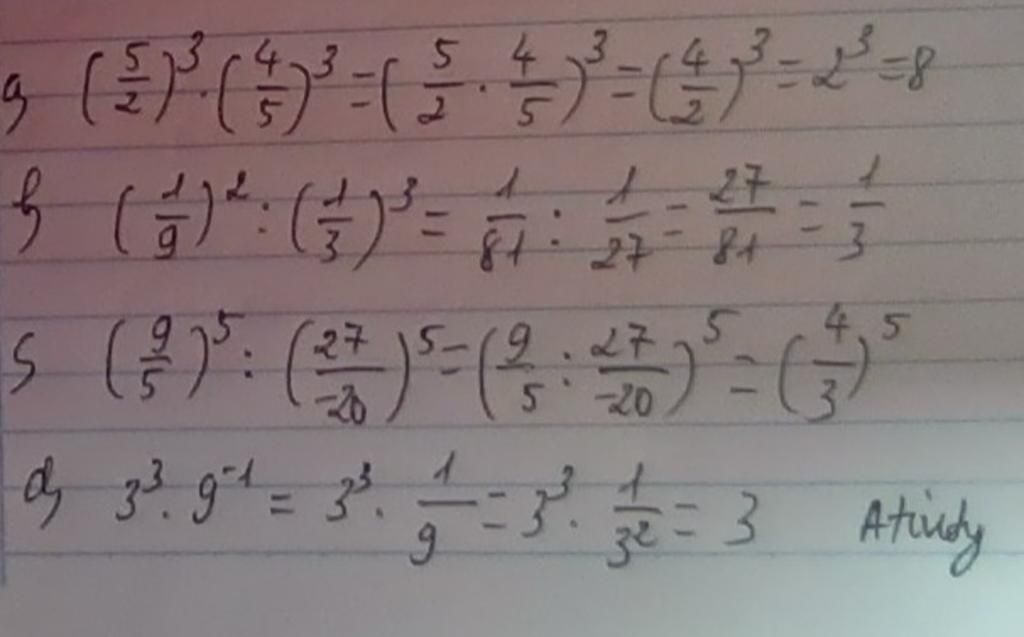 a) (5/2)^3 . (4/5)^3 = (5/2 . 4/5)^3 = (4/2)^3 = 2^3 = 8
b) (1/9)^2 : (1/3)^3 = 1/81 : 1/27 = 27/81 = 1/3
c) (9/5)^5 : (27/-20)^5 = (9/5 : 27/-20)^5 = (4/3)^5
d) 3^3 . 9^-1 = 3^3 . 1/9 = 3^3 . 1/3^2 = 3 Atindy